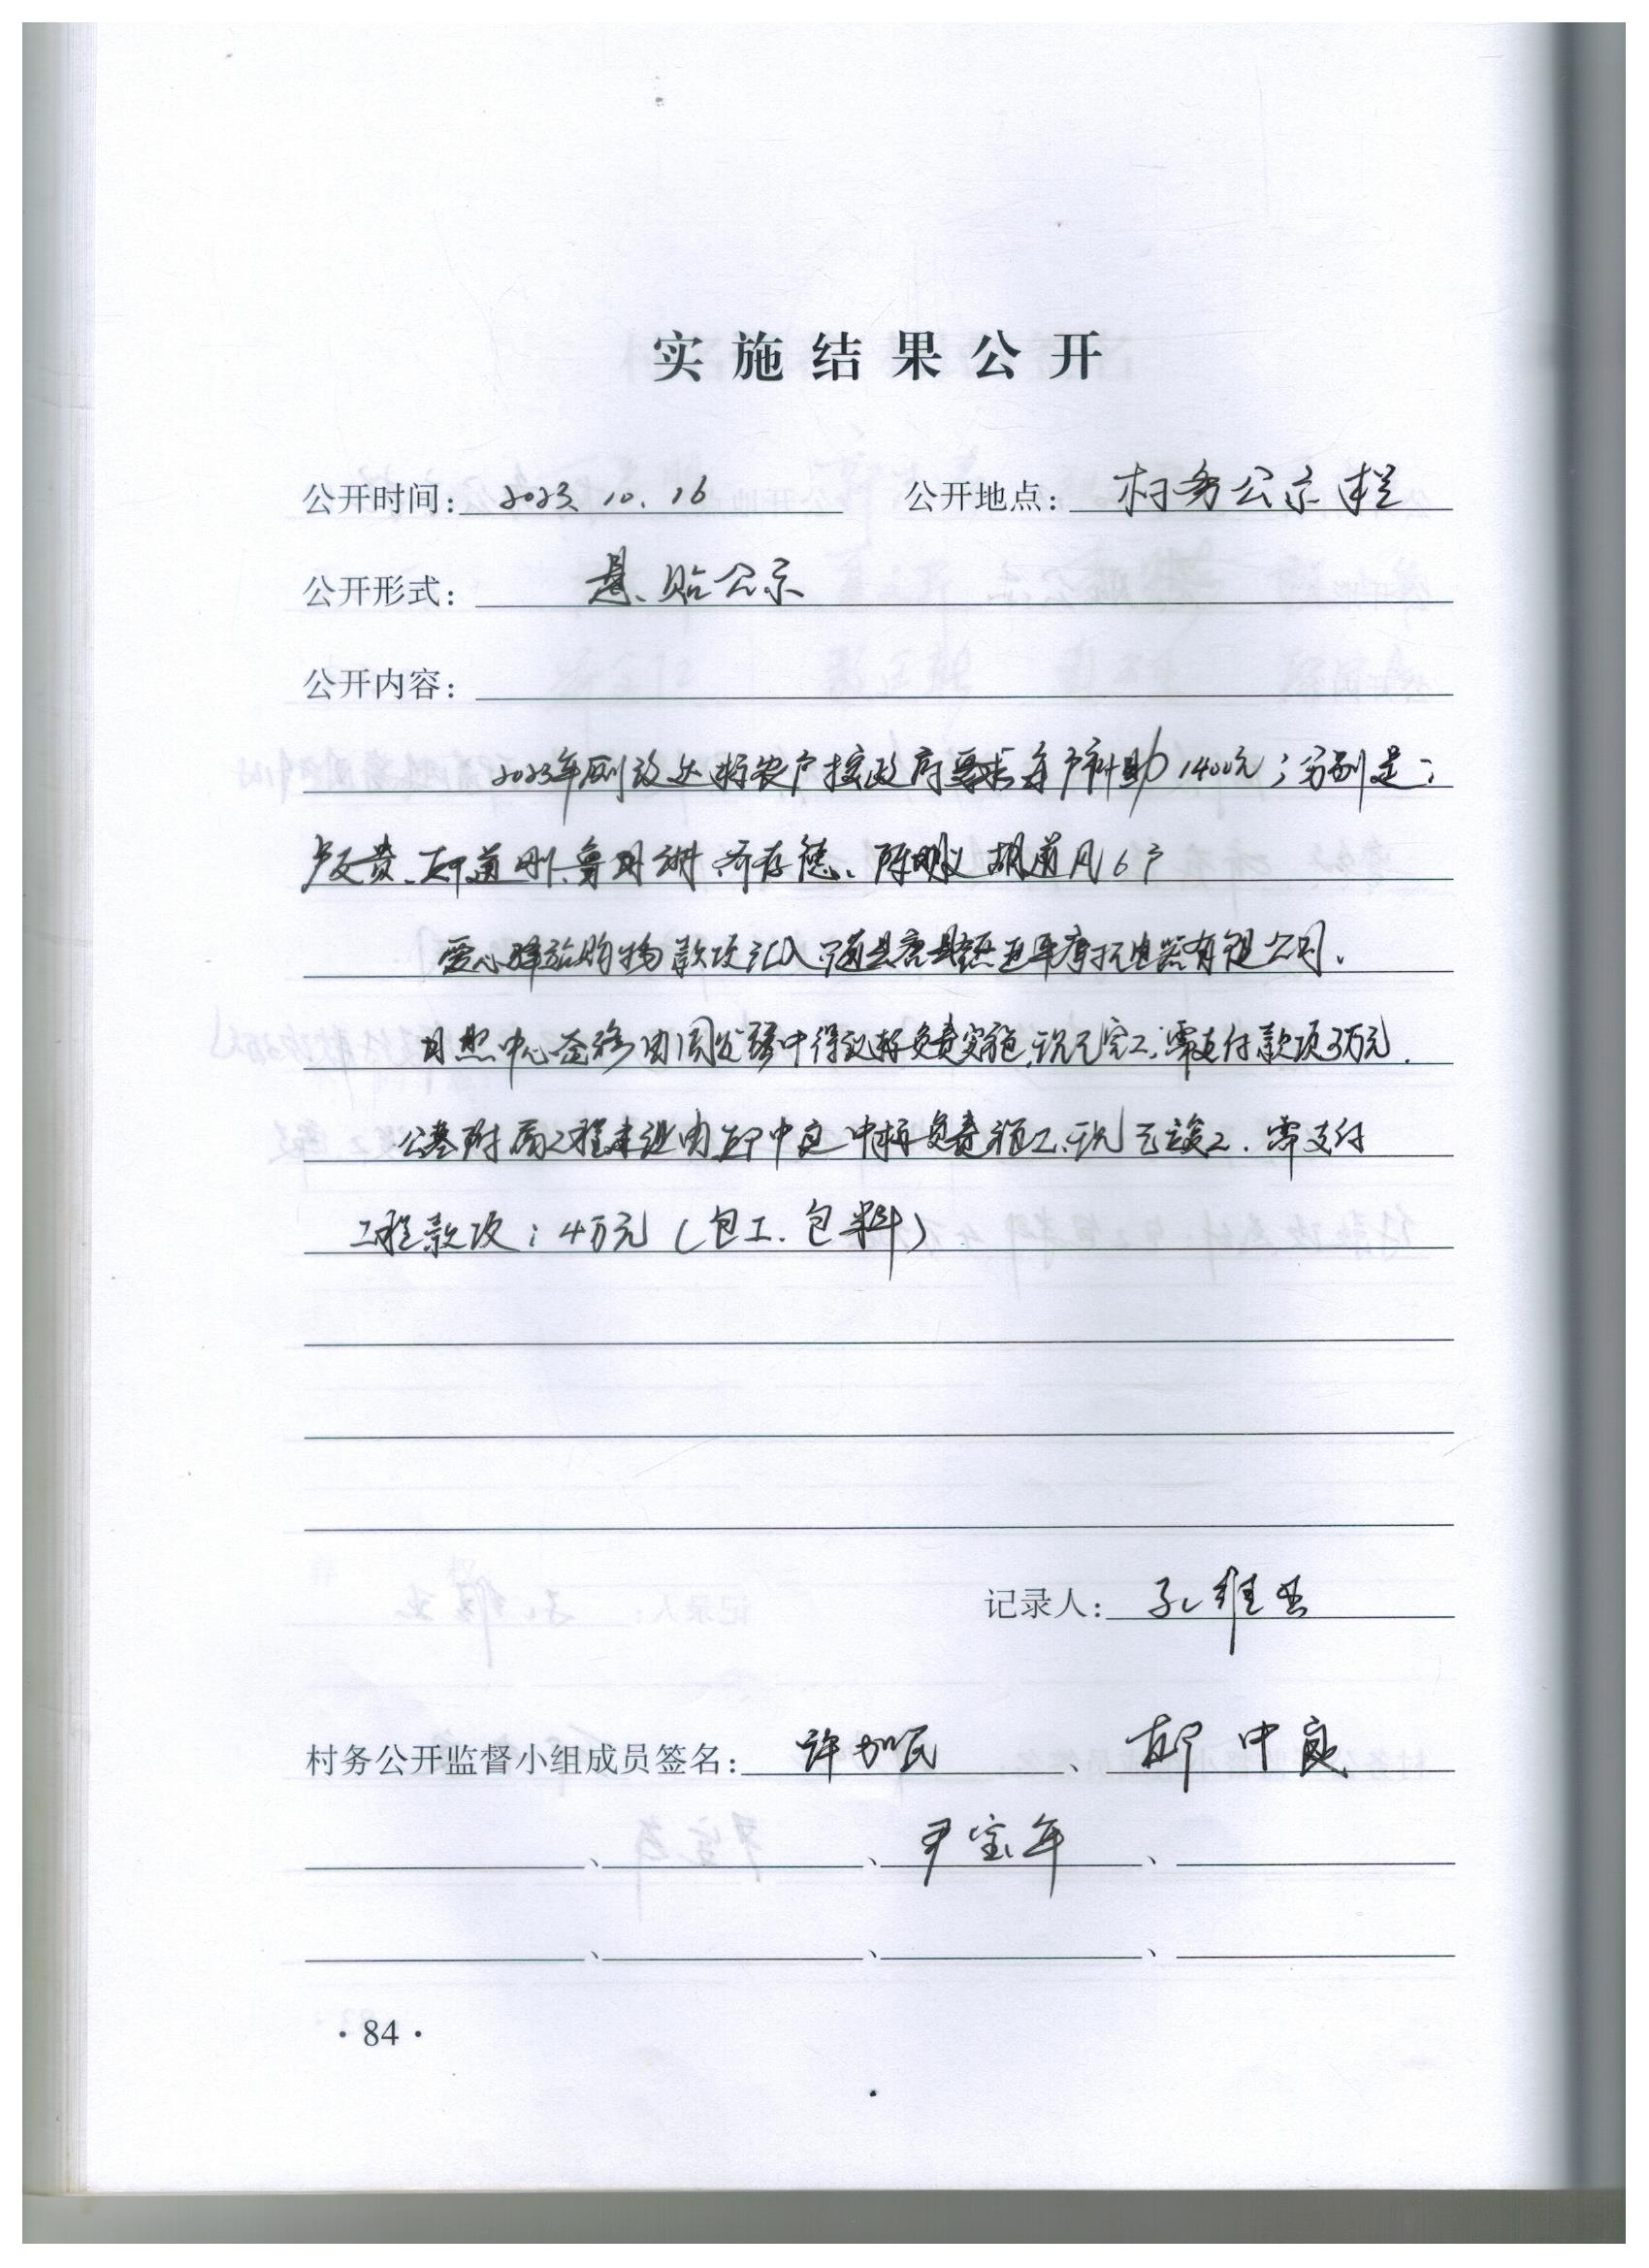 实施结果公开
公开时间：2023.10.16 公开地点：村务公示栏
公开形式：悬贴公示
公开内容：
2023年厕改达标农户按政府要求每户补助1400元；分别是：
贵、道刚、鲁 存德、陈明义 胡道凡6户
爱心驿站购物款项汇入 车摩托电器有限公司.
日照中心 由周发 中得议标负责实施,现已完工,需支付款项3万元.
公墓附属工程建设由 中良中标负责施工、现已竣工.需支付
工程款项：4万元（包工.包料）
记录人：孔维
村务公开监督小组成员签名：许加民、中良
、、尹宝年、
、、、
·84·